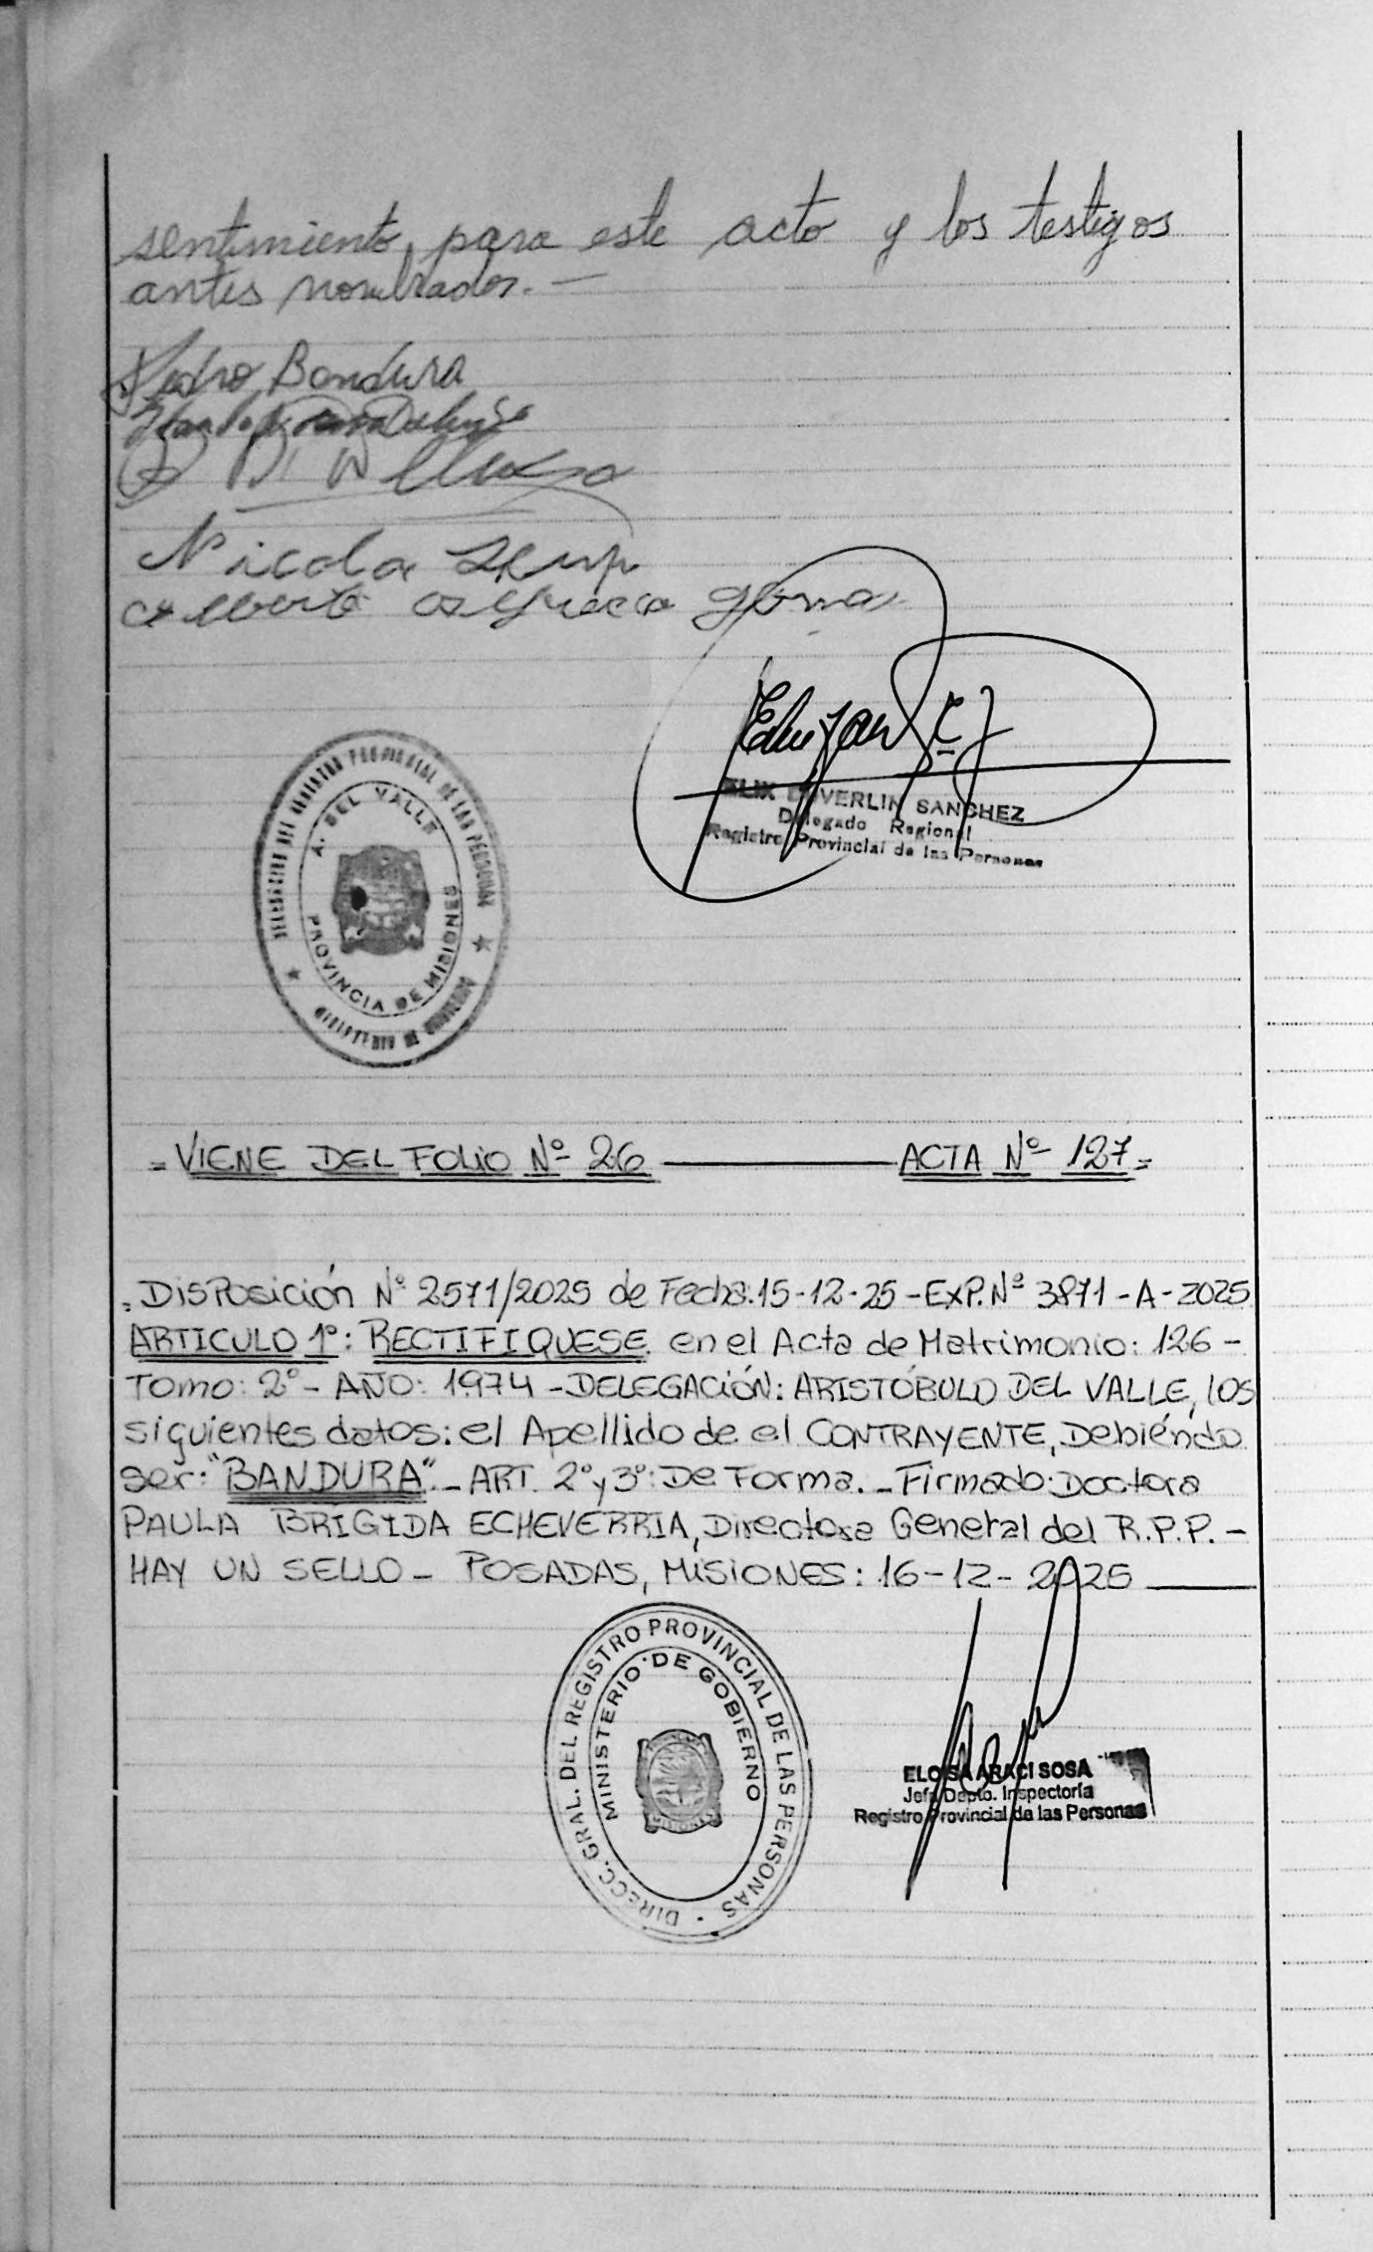 sentimiento, para este acto y los testigos
antes nombrados. —
Pedro Bandura
Nicola
Alberto
A. DEL VALLE
PROVINCIA DE MISIONES
SANCHEZ
Delegado Regional
Registro Provincial de las Personas
= VIENE DEL FOLIO Nº 26 ——— ACTA Nº 127 =
= Disposición Nº 2571/2025 de Fecha: 15-12-25 - EXP. Nº 3871 - A - 2025
ARTICULO 1º: RECTIFIQUESE en el Acta de Matrimonio: 126 -
Tomo: 2º - AÑO: 1974 - DELEGACIÓN: ARISTÓBULO DEL VALLE, los
siguientes datos: el Apellido de el CONTRAYENTE, Debiéndo
ser: "BANDURA". - ART. 2º y 3º: De Forma. - Firmado: Doctora
PAULA BRIGIDA ECHEVERRIA, Directora General del R.P.P. -
HAY UN SELLO - POSADAS, MISIONES: 16-12-2025 ———
DIRECC. GRAL. DEL REGISTRO PROVINCIAL DE LAS PERSONAS
MINISTERIO DE GOBIERNO
ELOISA ARACI SOSA
Jefa Depto. Inspectoría
Registro Provincial de las Personas